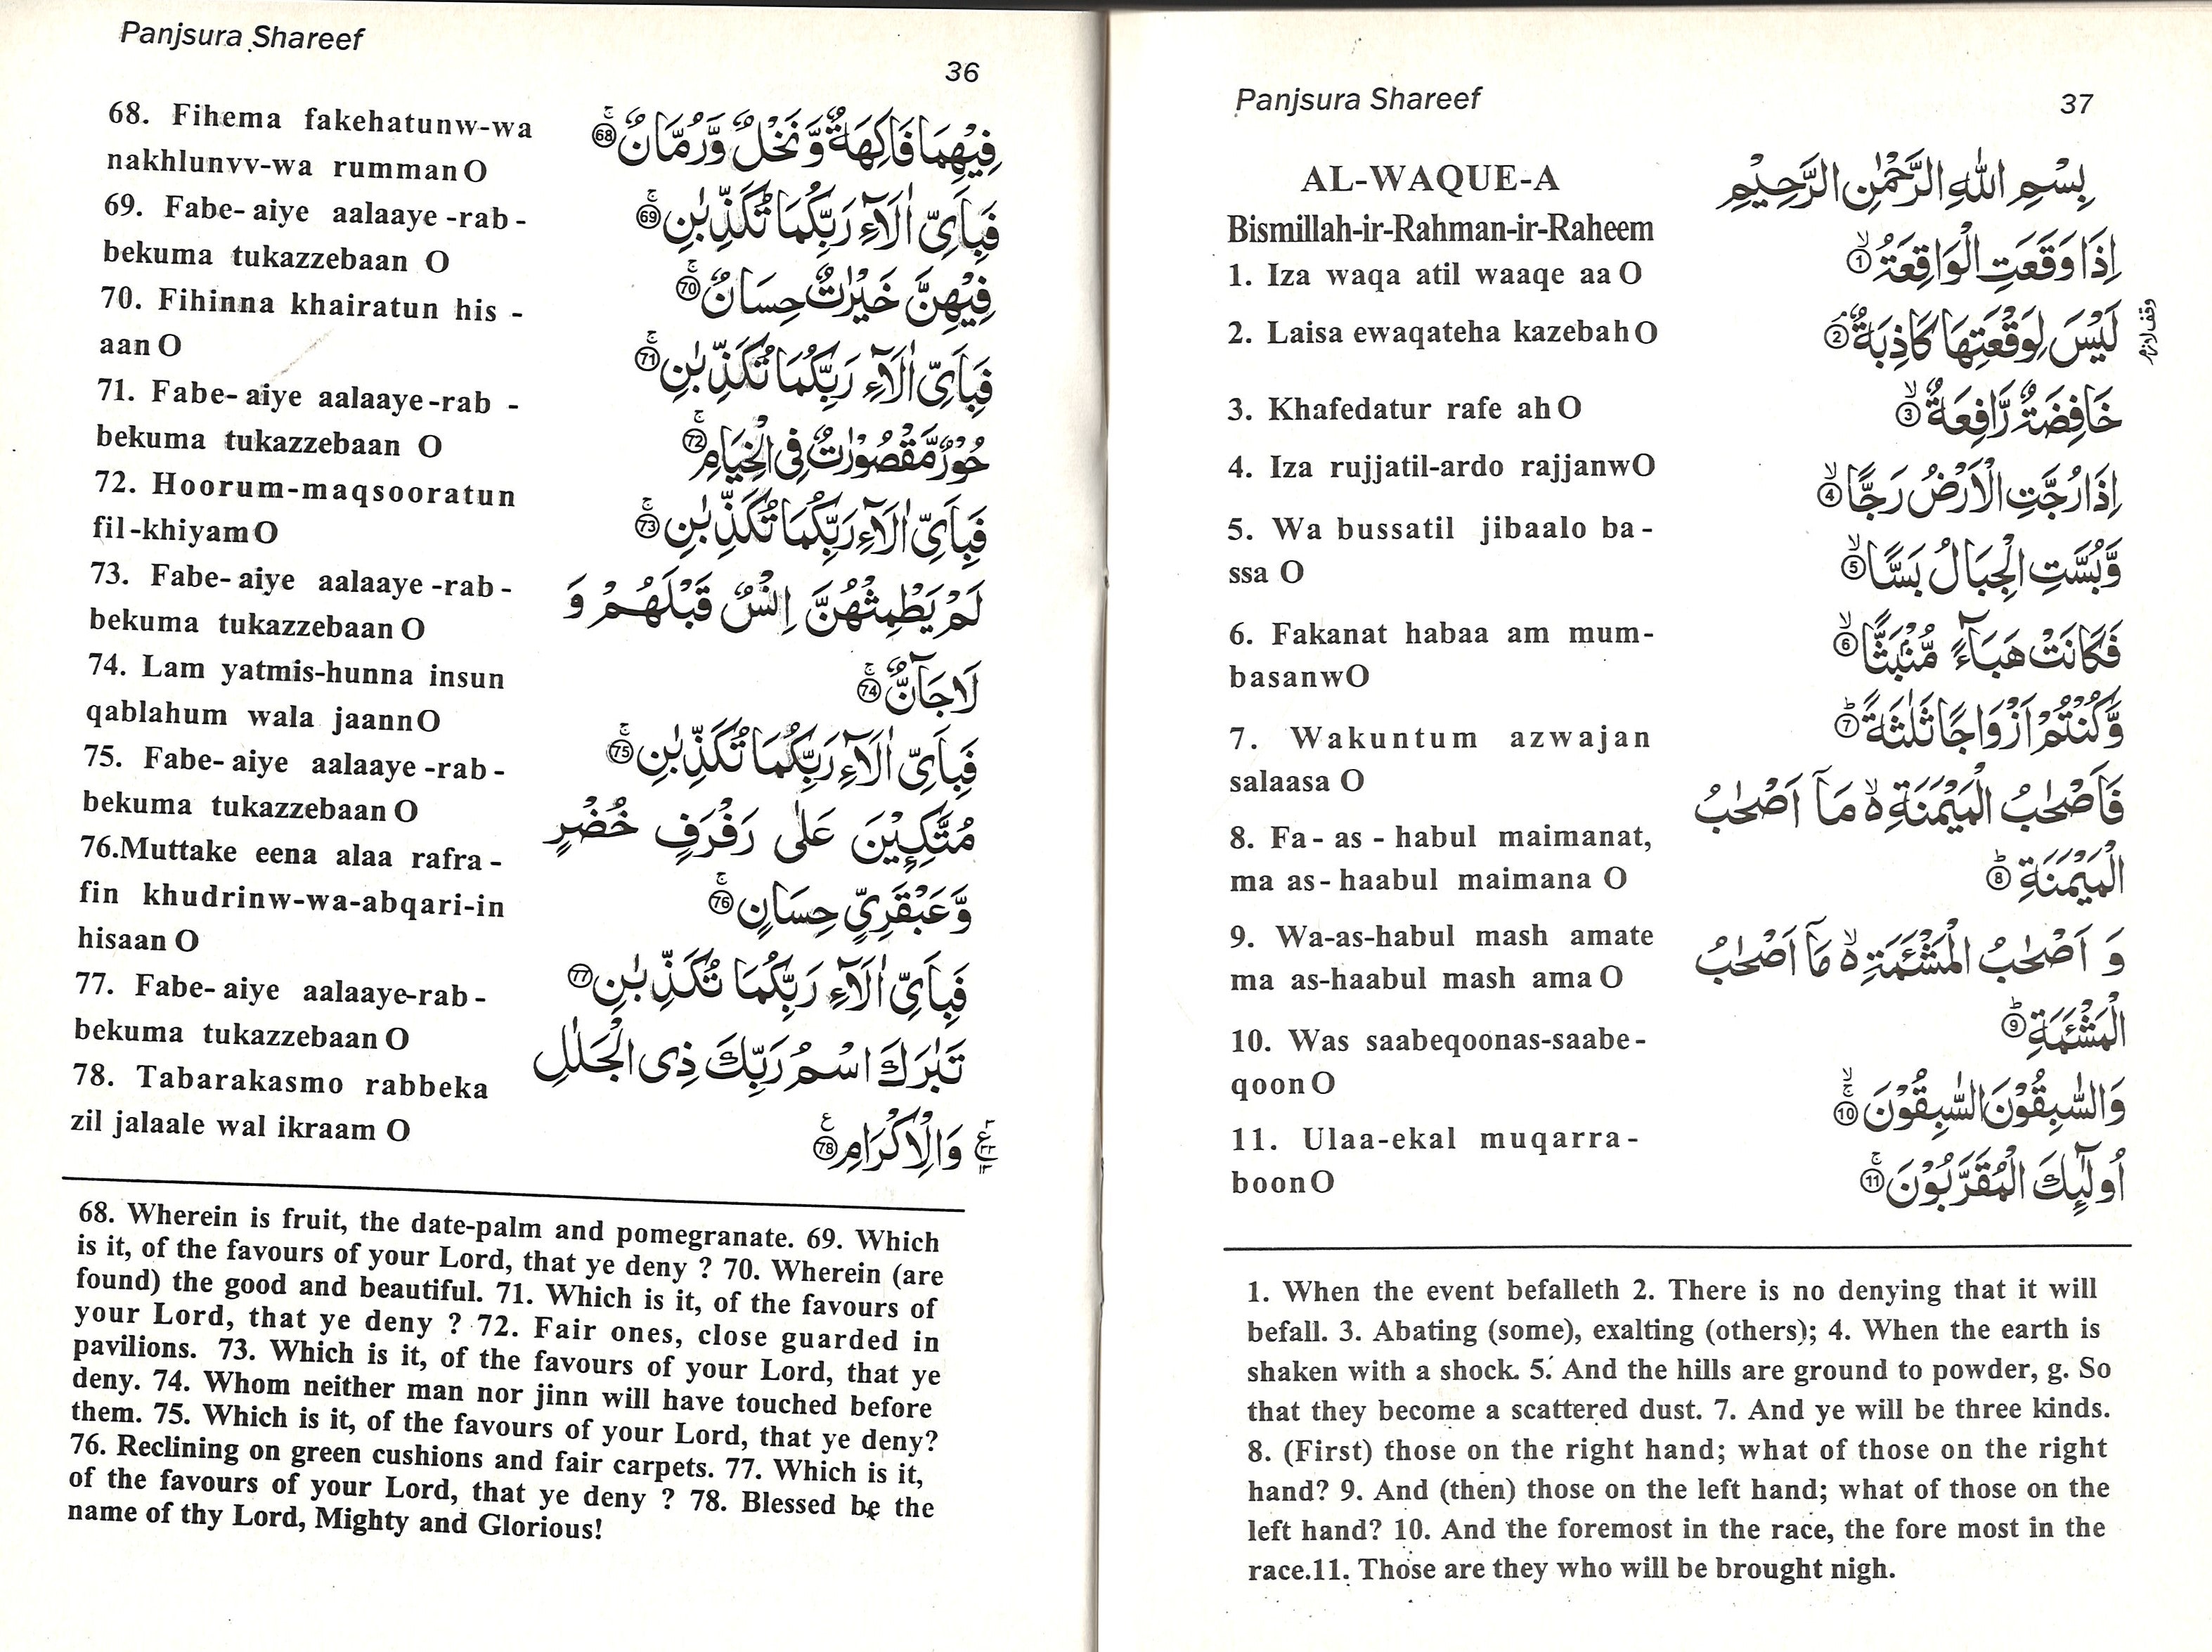 Panjsura Shareef
36
68. Fihema fakehatunw-wa
nakhlunvv-wa rumman O
69. Fabe-aiye aalaaye-rab-
bekuma tukazzebaan O
70. Fihinna khairatun his-
aan O
71. Fabe-aiye aalaaye-rab-
bekuma tukazzebaan O
72. Hoorum-maqsooratun
fil-khiyam O
73. Fabe-aiye aalaaye-rab-
bekuma tukazzebaan O
74. Lam yatmis-hunna insun
qablahum wala jaann O
75. Fabe-aiye aalaaye-rab-
bekuma tukazzebaan O
76.Muttake eena alaa rafra-
fin khudrinw-wa-abqari-in
hisaan O
77. Fabe-aiye aalaaye-rab-
bekuma tukazzebaan O
78. Tabarakasmo rabbeka
zil jalaale wal ikraam O
فِيْهِمَا فَاكِهَةٌ وَّنَخْلٌ وَّرُمَّانٌ ۚ 68
فَبِاَيِّ اٰلَآءِ رَبِّكُمَا تُكَذِّبٰنِ ۚ 69
فِيْهِنَّ خَيْرٰتٌ حِسَانٌ ۚ 70
فَبِاَيِّ اٰلَآءِ رَبِّكُمَا تُكَذِّبٰنِ ۚ 71
حُوْرٌ مَّقْصُوْرٰتٌ فِى الْخِيَامِ ۚ 72
فَبِاَيِّ اٰلَآءِ رَبِّكُمَا تُكَذِّبٰنِ ۚ 73
لَمْ يَطْمِثْهُنَّ اِنْسٌ قَبْلَهُمْ وَ
لَا جَآنٌّ ۚ 74
فَبِاَيِّ اٰلَآءِ رَبِّكُمَا تُكَذِّبٰنِ ۚ 75
مُتَّكِـِٕيْنَ عَلٰى رَفْرَفٍ خُضْرٍ
وَّعَبْقَرِيٍّ حِسَانٍ ۚ 76
فَبِاَيِّ اٰلَآءِ رَبِّكُمَا تُكَذِّبٰنِ 77
تَبٰرَكَ اسْمُ رَبِّكَ ذِى الْجَلٰلِ
وَالْاِكْرَامِ 78
68. Wherein is fruit, the date-palm and pomegranate. 69. Which
is it, of the favours of your Lord, that ye deny ? 70. Wherein (are
found) the good and beautiful. 71. Which is it, of the favours of
your Lord, that ye deny ? 72. Fair ones, close guarded in
pavilions. 73. Which is it, of the favours of your Lord, that ye
deny. 74. Whom neither man nor jinn will have touched before
them. 75. Which is it, of the favours of your Lord, that ye deny?
76. Reclining on green cushions and fair carpets. 77. Which is it,
of the favours of your Lord, that ye deny ? 78. Blessed be the
name of thy Lord, Mighty and Glorious!
Panjsura Shareef
37
AL-WAQUE-A
Bismillah-ir-Rahman-ir-Raheem
1. Iza waqa atil waaqe aa O
2. Laisa ewaqateha kazebah O
3. Khafedatur rafe ah O
4. Iza rujjatil-ardo rajjanwO
5. Wa bussatil jibaalo ba-
ssa O
6. Fakanat habaa am mum-
basanwO
7. Wakuntum azwajan
salaasa O
8. Fa-as-habul maimanat,
ma as-haabul maimana O
9. Wa-as-habul mash amate
ma as-haabul mash ama O
10. Was saabeqoonas-saabe-
qoon O
11. Ulaa-ekal muqarra-
boon O
بِسْمِ اللّٰهِ الرَّحْمٰنِ الرَّحِيْمِ
اِذَا وَقَعَتِ الْوَاقِعَةُ ۙ 1
لَيْسَ لِوَقْعَتِهَا كَاذِبَةٌ ۘ 2
وقف لازم
خَافِضَةٌ رَّافِعَةٌ ۙ 3
اِذَا رُجَّتِ الْاَرْضُ رَجًّا ۙ 4
وَّبُسَّتِ الْجِبَالُ بَسًّا ۙ 5
فَكَانَتْ هَبَآءً مُّنْۢبَثًّا ۙ 6
وَّكُنْتُمْ اَزْوَاجًا ثَلٰثَةً ؕ 7
فَاَصْحٰبُ الْمَيْمَنَةِ ۙ مَآ اَصْحٰبُ
الْمَيْمَنَةِ ؕ 8
وَ اَصْحٰبُ الْمَشْـَٔمَةِ ۙ مَآ اَصْحٰبُ
الْمَشْـَٔمَةِ ؕ 9
وَالسّٰبِقُوْنَ السّٰبِقُوْنَ ۙۚ 10
اُولٰٓئِكَ الْمُقَرَّبُوْنَ ۚ 11
1. When the event befalleth 2. There is no denying that it will
befall. 3. Abating (some), exalting (others); 4. When the earth is
shaken with a shock. 5. And the hills are ground to powder, g. So
that they become a scattered dust. 7. And ye will be three kinds.
8. (First) those on the right hand; what of those on the right
hand? 9. And (then) those on the left hand; what of those on the
left hand? 10. And the foremost in the race, the fore most in the
race.11. Those are they who will be brought nigh.